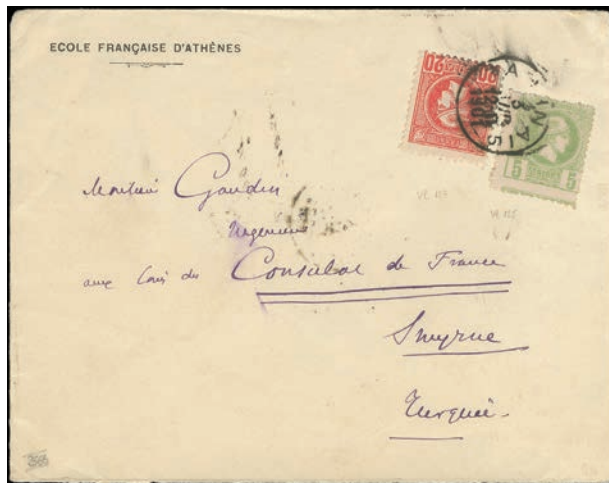 ECOLE FRANÇAISE D'ATHÈNES
20 20
5 5
1901
Monsieur Gaudin
Ingenieur
aux Consulat de France
Smyrne
Turquie